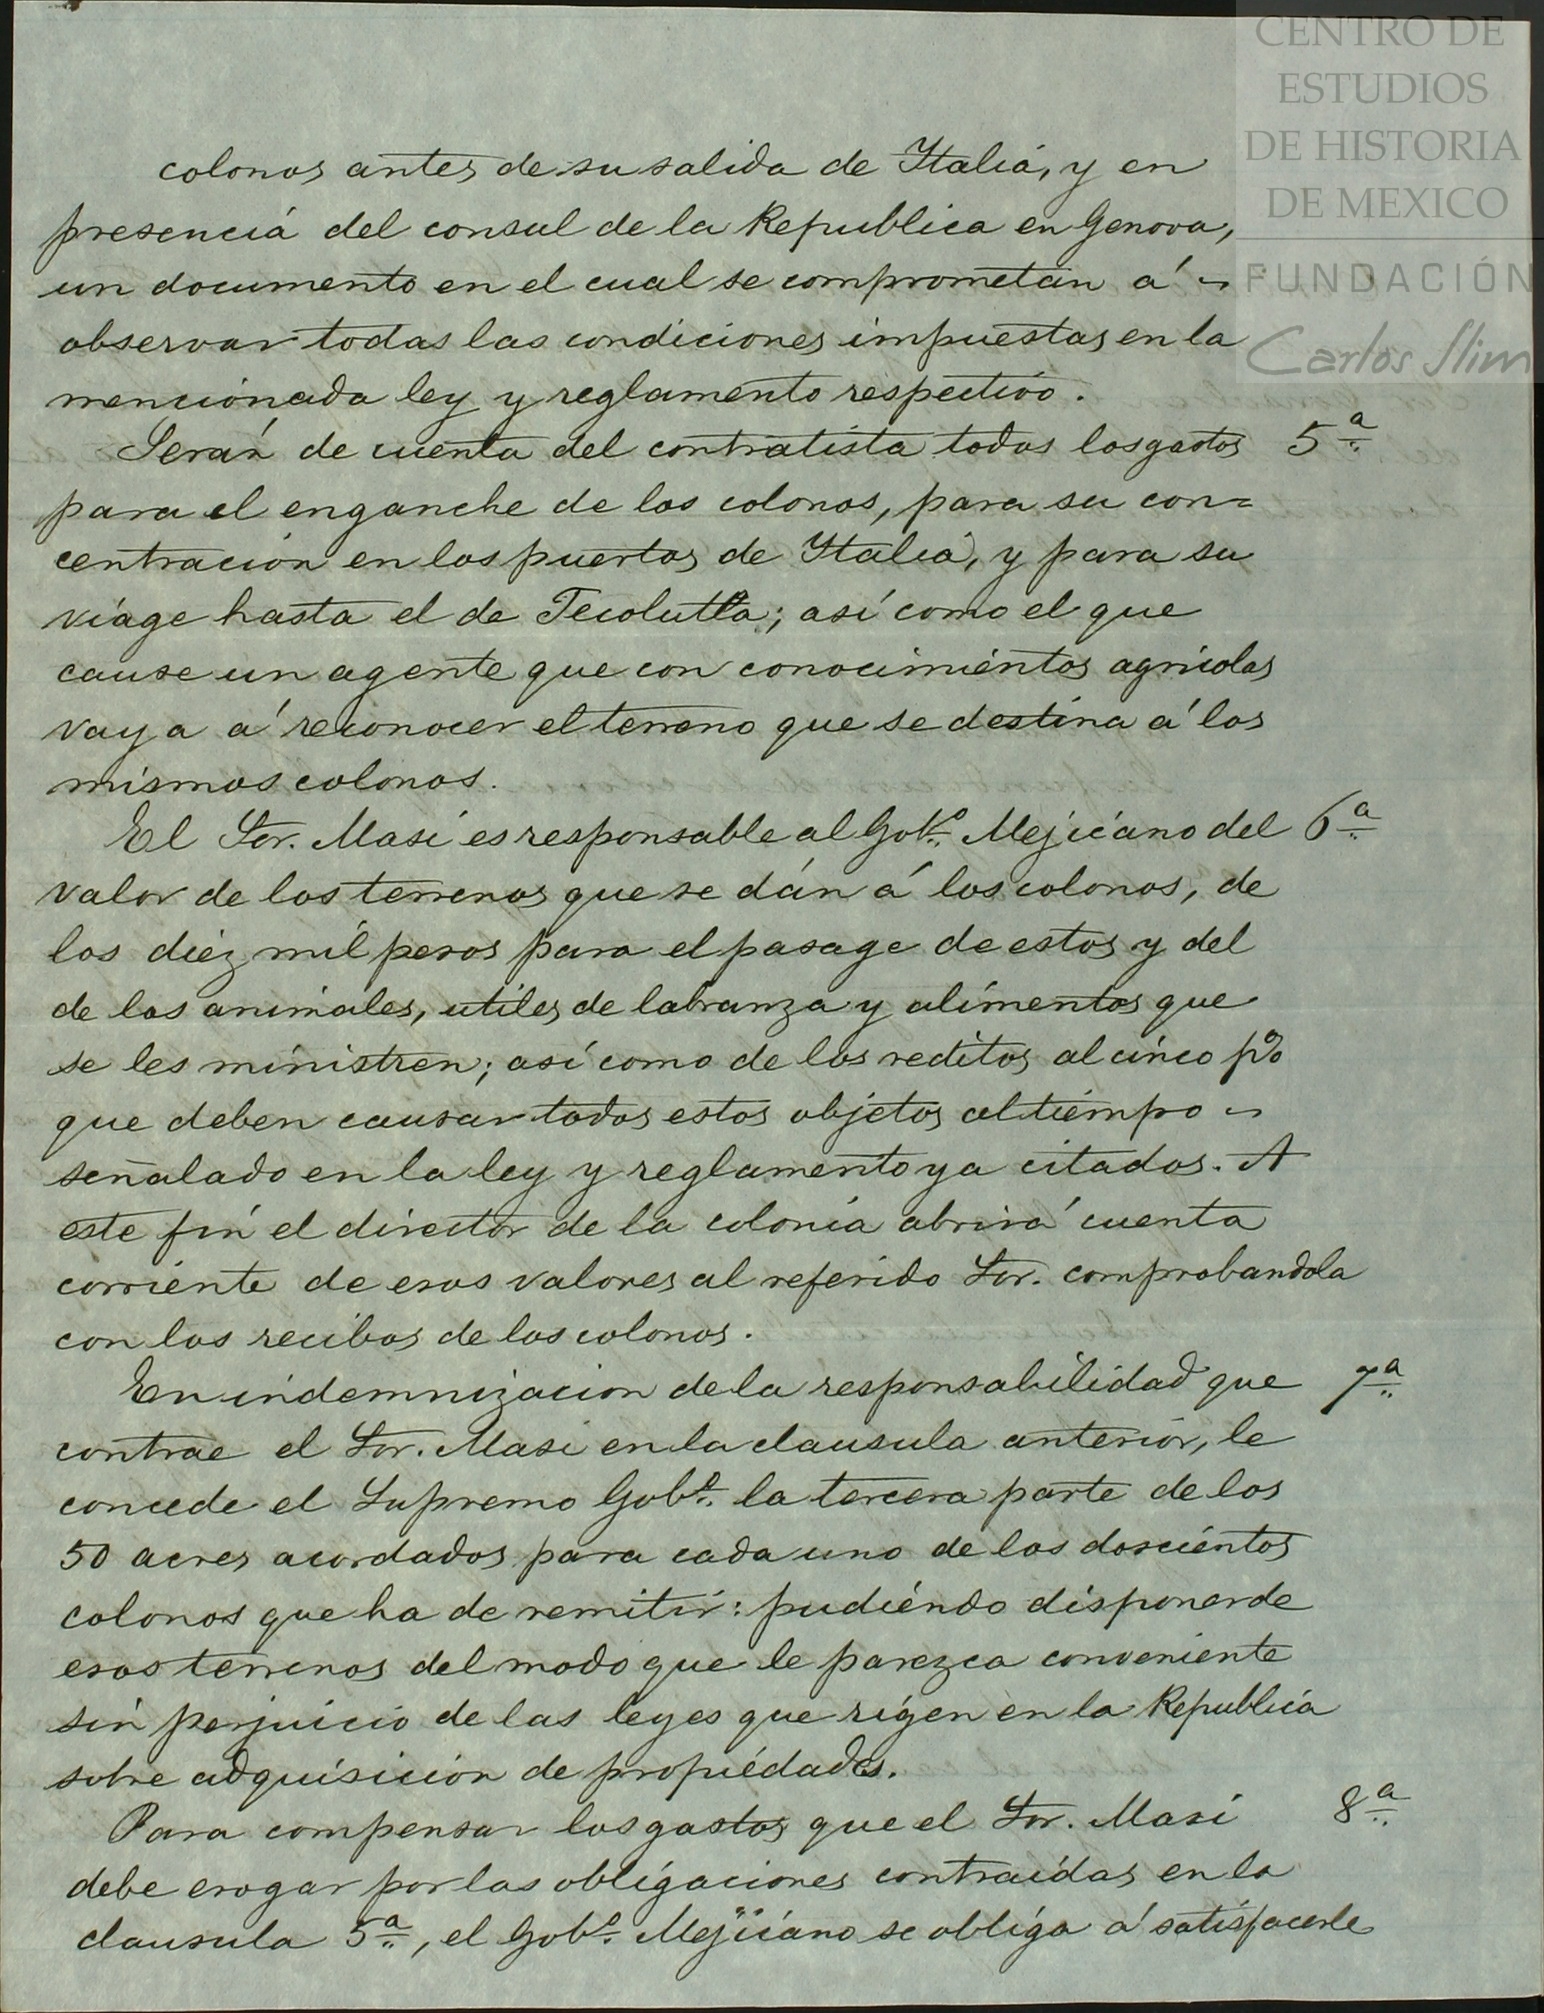 CENTRO DE
ESTUDIOS
DE HISTORIA
DE MEXICO
FUNDACIÓN
Carlos Slim
colonos antes de su salida de Italia, y en
presencia del consul de la Republica en Genova,
un documento en el cual se comprometan á
observar todas las condiciones impuestas en la
mencionada ley y reglamento respectivo.
Serán de cuenta del contratista todos los gastos 5ª
para el enganche de los colonos, para su con=
centracion en los puertos de Italia, y para su
viage hasta el de Tecolutla; así como el que
cause un agente que con conocimientos agricolas
vaya á reconocer el terreno que se destina á los
mismos colonos.
El Sor. Masi es responsable al Gobº Mejicano del 6ª
valor de los terrenos que se dán á los colonos, de
los diez mil pesos para el pasage de estos y del
de los animales, utiles de labranza y alimentos que
se les ministren; así como de los reditos al cinco p%
que deben causar todos estos objetos al tiempo
señalado en la ley y reglamento ya citados. A
este fin el director de la colonia abrirá cuenta
corriente de esos valores al referido Sor. comprobandola
con los recibos de los colonos.
En indemnizacion de la responsabilidad que 7ª
contrae el Sor. Masi en la clausula anterior, le
concede el Supremo Gobº la tercera parte de los
50 acres acordados para cada uno de los doscientos
colonos que ha de remitir: pudiendo disponer de
esos terrenos del modo que le parezca conveniente
sin perjuicio de las leyes que rigen en la Republica
sobre adquisicion de propiedades.
Para compensar los gastos que el Sor. Masi 8ª
debe erogar por las obligaciones contraidas en la
clausula 5ª, el Gobº Mejicano se obliga á satisfacerle